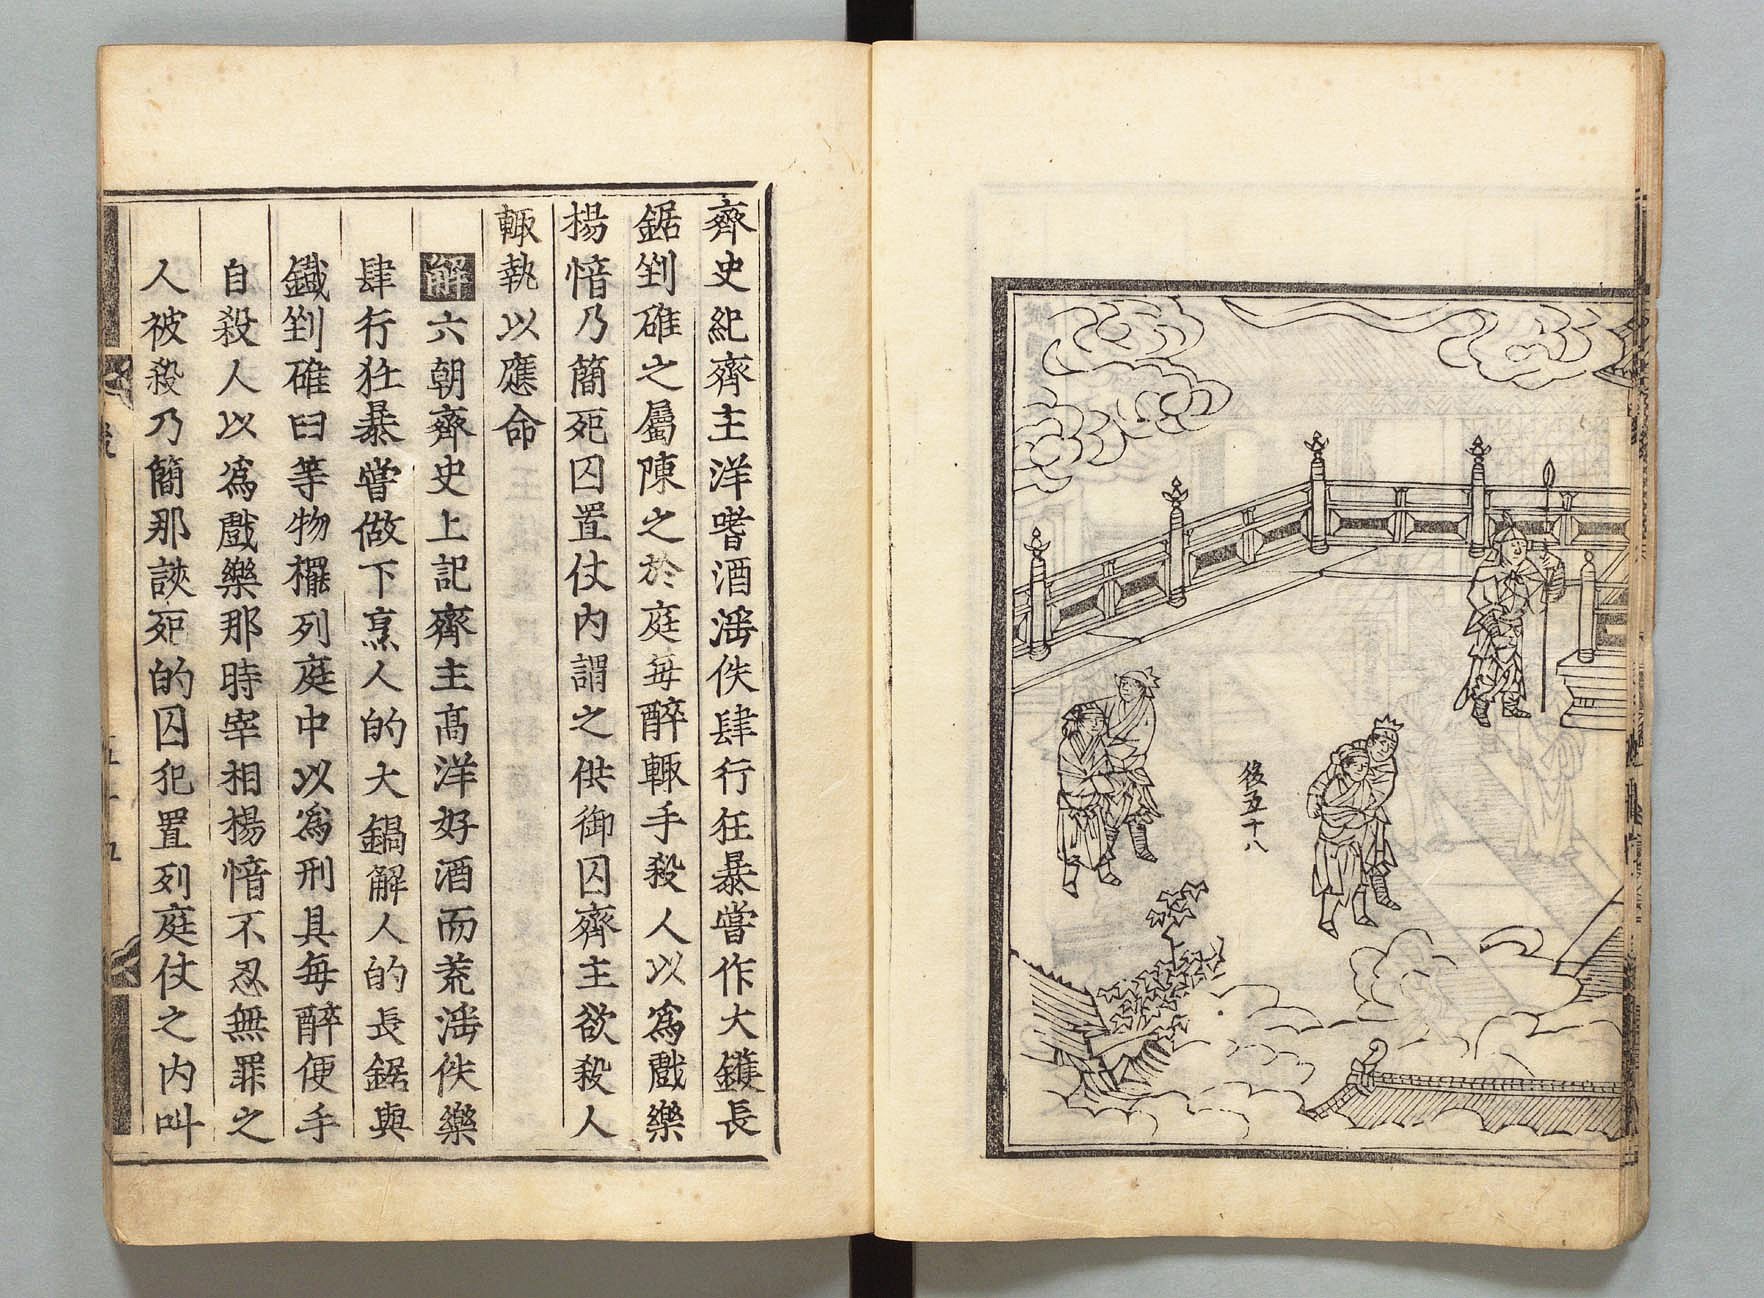 後五十八
齊史紀齊主洋嗜酒淫佚肆行狂暴嘗作大鑊長
鋸剉碓之屬陳之於庭每醉輒手殺人以為戲樂
楊愔乃簡死囚置仗內謂之供御囚齊主欲殺人
輒執以應命
解六朝齊史上記齊主高洋好酒而荒淫佚樂
肆行狂暴嘗做下烹人的大鍋解人的長鋸與
鐵剉碓臼等物擺列庭中以為刑具每醉便手
自殺人以為戲樂那時宰相楊愔不忍無罪之
人被殺乃簡那該死的囚犯置列庭仗之內叫